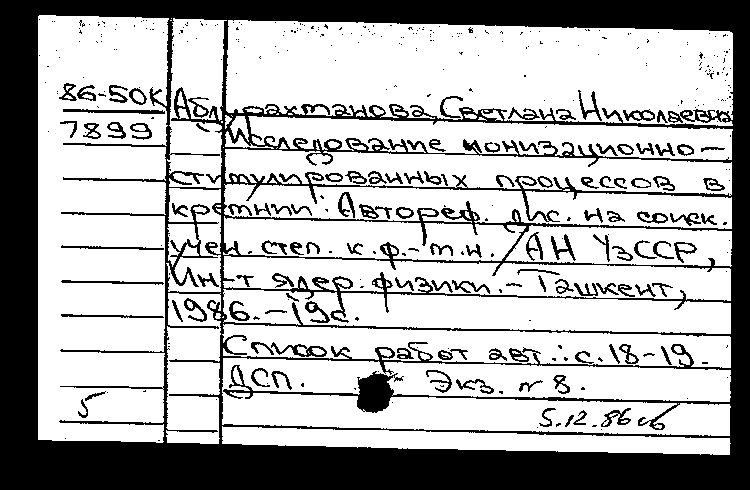 86-50К Абдурахманова, Светлана Николаевна
7899 Исследование ионизационно-
стимулированных процессов в
кремнии : Автореф. дис. на соиск.
учен. степ. к.ф.-м.н. / АН УзССР,
Ин-т ядер. физики. - Ташкент,
1986. - 19с.
Список работ авт.: с. 18-19.
ДСП. Экз. № 8.
5 5.12.86